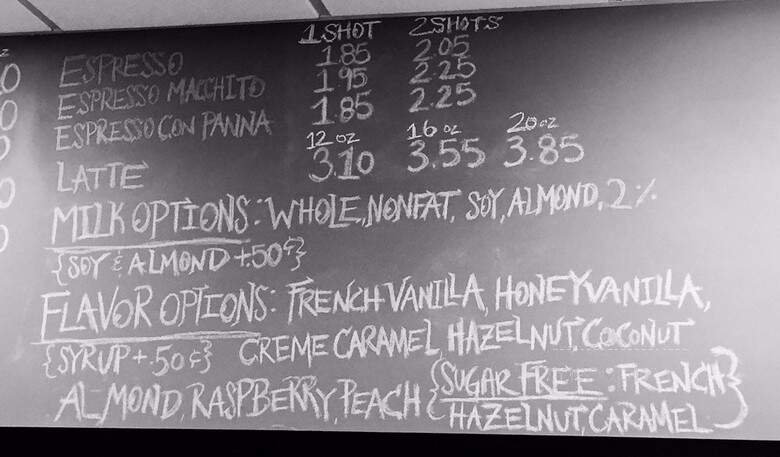 1 SHOT 2 SHOTS
ESPRESSO 1.85 2.05
ESPRESSO MACCHITO 1.95 2.25
ESPRESSO CON PANNA 1.85 2.25
12 oz 16 oz 20 oz
LATTE 3.10 3.55 3.85
MILK OPTIONS: WHOLE, NONFAT, SOY, ALMOND, 2%
{SOY & ALMOND +.50¢}
FLAVOR OPTIONS: FRENCH VANILLA, HONEY VANILLA,
{SYRUP +.50¢} CREME CARAMEL, HAZELNUT, COCONUT
ALMOND, RASPBERRY, PEACH {SUGAR FREE: FRENCH
HAZELNUT, CARAMEL}